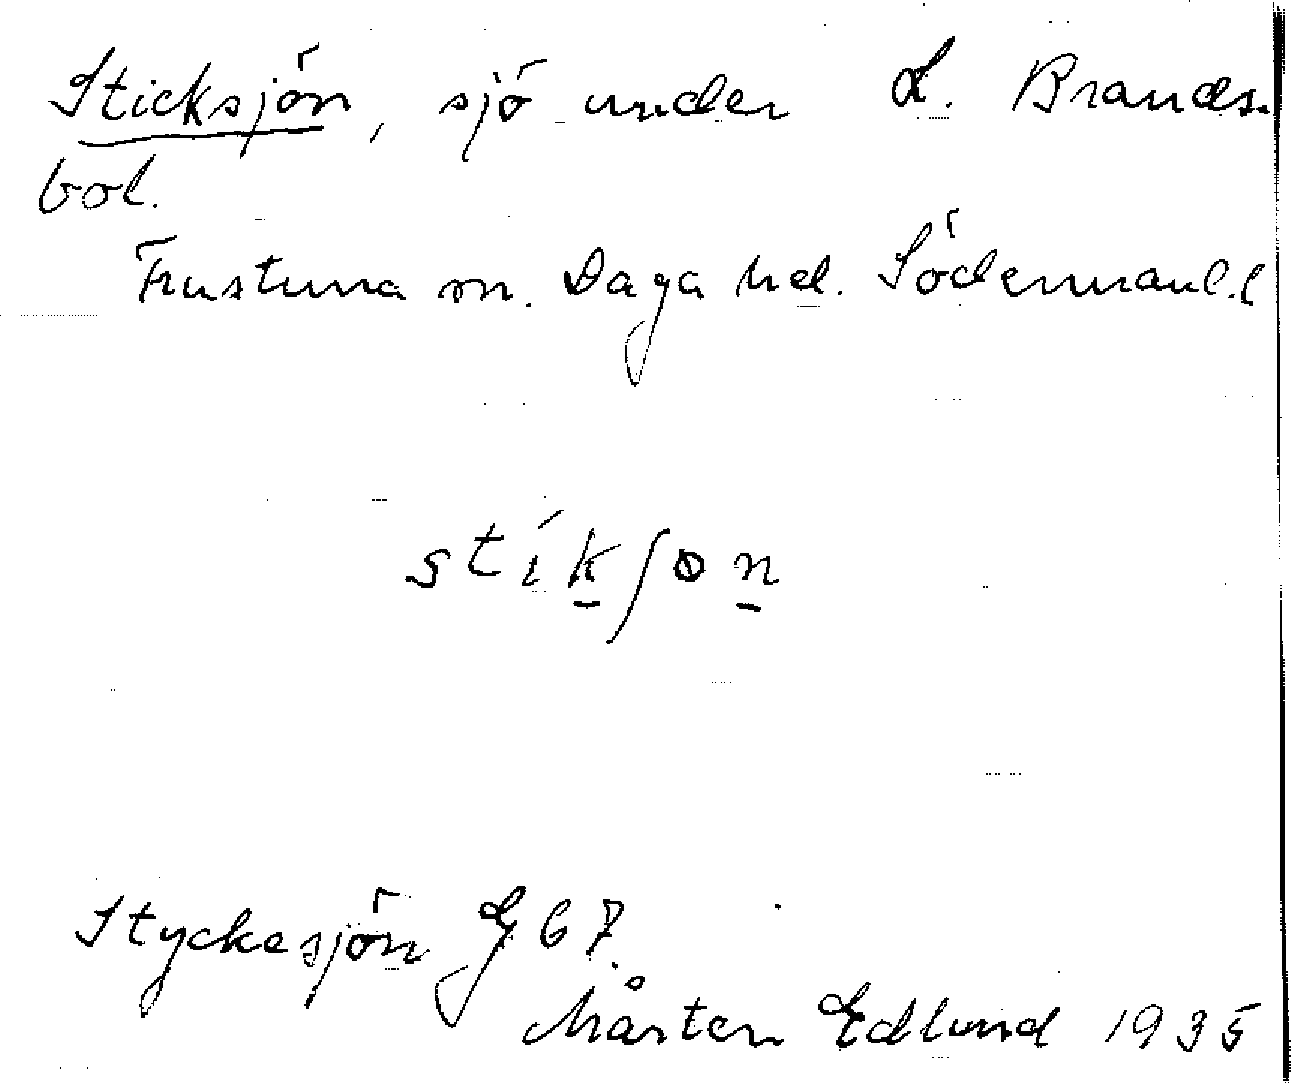 Sticksjön, sjö under L. Brands-
bol.
Frustuna sn. Daga hd. Södermanl. l
stík̠ʃɵn̠
Styckesjön G 67.
Mårten Edlund 1935